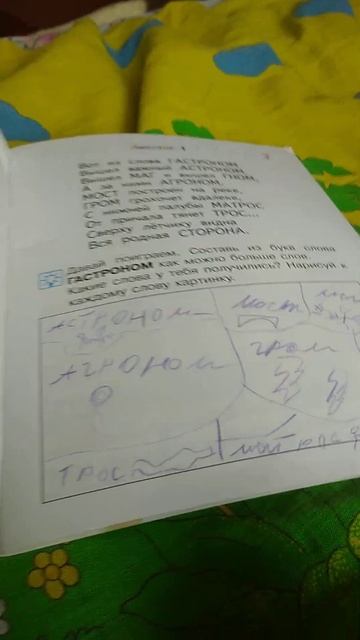 Вот из слова ГАСТРОНОМ
Вышел важный АСТРОНОМ,
Вышел МАГ и вышел ГНОМ,
А за ними АГРОНОМ.
МОСТ построен на реке,
ГРОМ грохочет вдалеке,
С нижней палубы МАТРОС
От причала тянет ТРОС...
Сверху лётчику видна
Вся родная СТОРОНА.
Давай поиграем. Составь из букв слова
ГАСТРОНОМ как можно больше слов.
Какие слова у тебя получились? Нарисуй к
каждому слову картинку.
АСТРОНОМ мост
АГРОНОМ гром
ТРОС